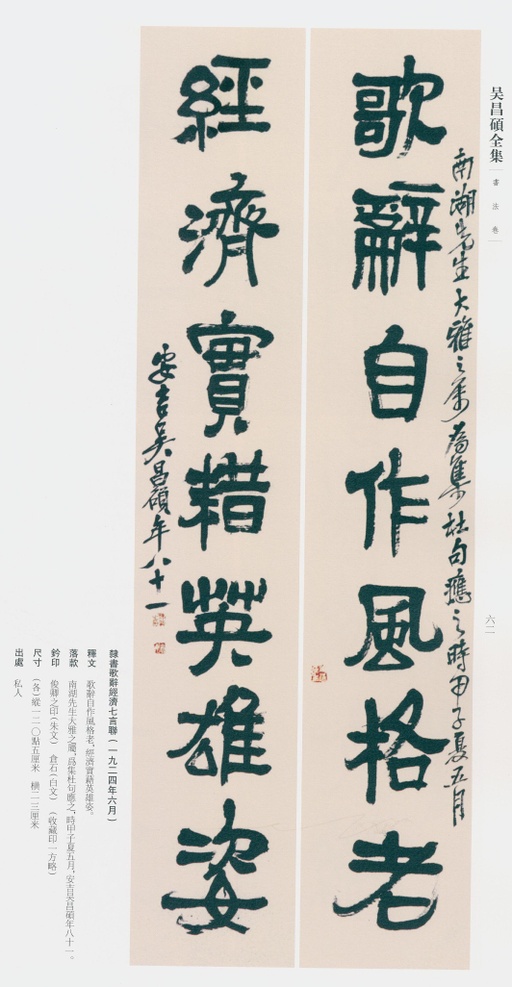 吴昌碩全集
書法卷
南湖先生大雅之属為集杜句應之時甲子夏五月
歌辭自作風格老
經濟實耤英雄姿
安吉吴昌碩年八十一
六二
隸書歌辭經濟七言聯（一九二四年六月）
釋文　歌辭自作風格老，經濟實藉英雄姿。
落款　南湖先生大雅之屬，爲集杜句應之，時甲子夏五月，安吉吴昌碩年八十一。
鈐印　俊卿之印（朱文）　倉石（白文）　（收藏印一方略）
尺寸　（各）縱一二〇點五厘米　橫二三厘米
出處　私人